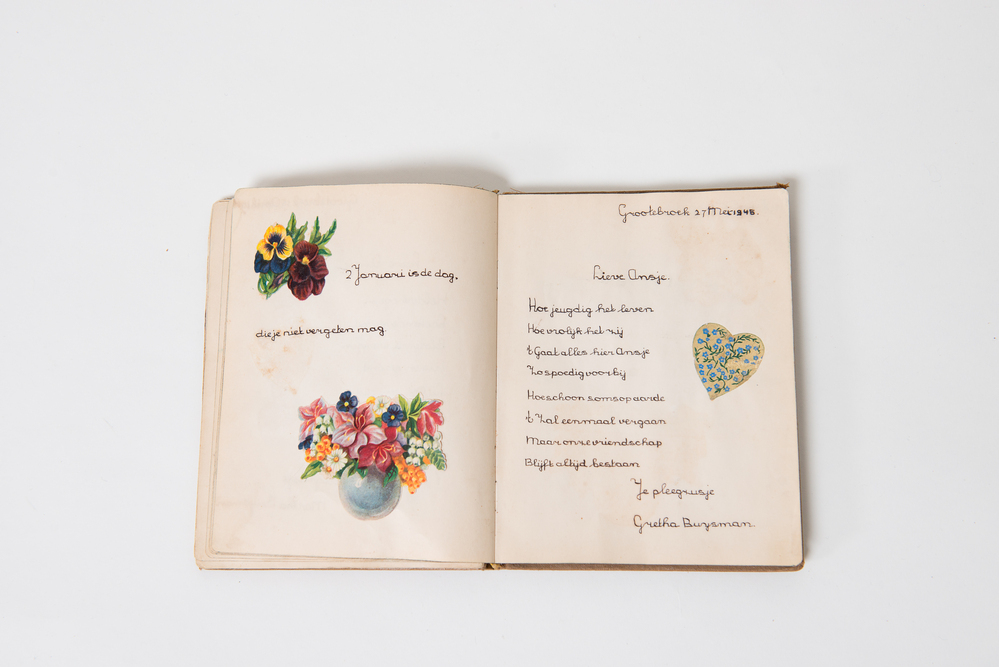 2 Januari is de dag.
die je niet vergeten mag
Grootebroek 27 Mei 1948.
Lieve Ansje.
Hoe jeugdig het leven
Hoe vrolijk het zij
't Gaat alles hier Ansje
Zo spoedig voorbij
Hoe schoon soms op aarde
't Zal eenmaal vergaan
Maar onze vriendschap
Blijft altijd bestaan
Je pleegzusje
Gretha Buysman.